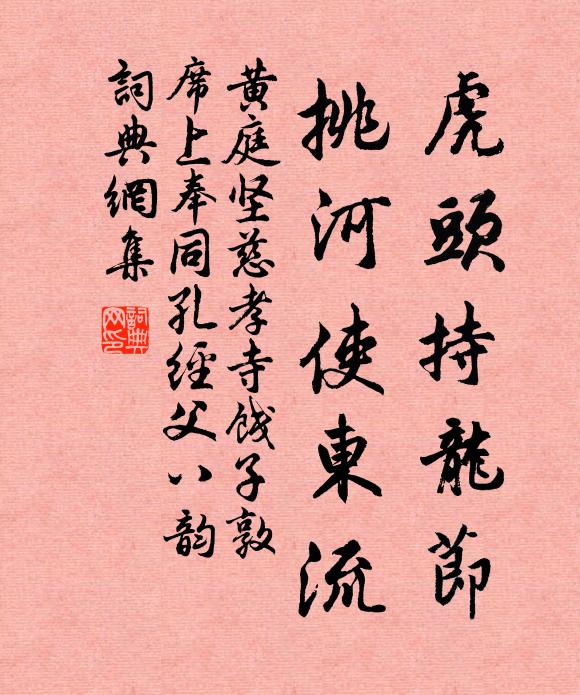 虎頭持龍節
挑河使東流
黃庭坚慈孝寺餞子敦
席上奉同孔經父八韵
詞典網集
詞典
网印